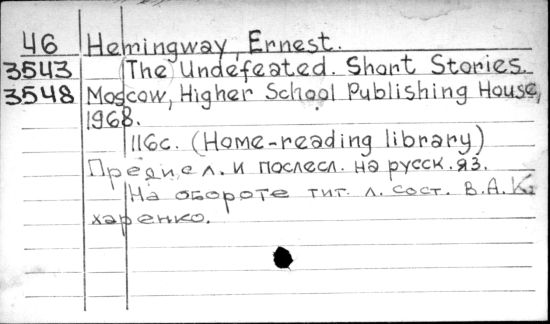 46 Hemingway, Ernest.
3543 (The) Undefeated. Short Stories.
3548 Moscow, Higher School Publishing House,
1968.
116с. (Home-reading library)
Предисл. и послесл. на русск. яз.
На обороте тит. л. сост. В.А.Ки
харенко.